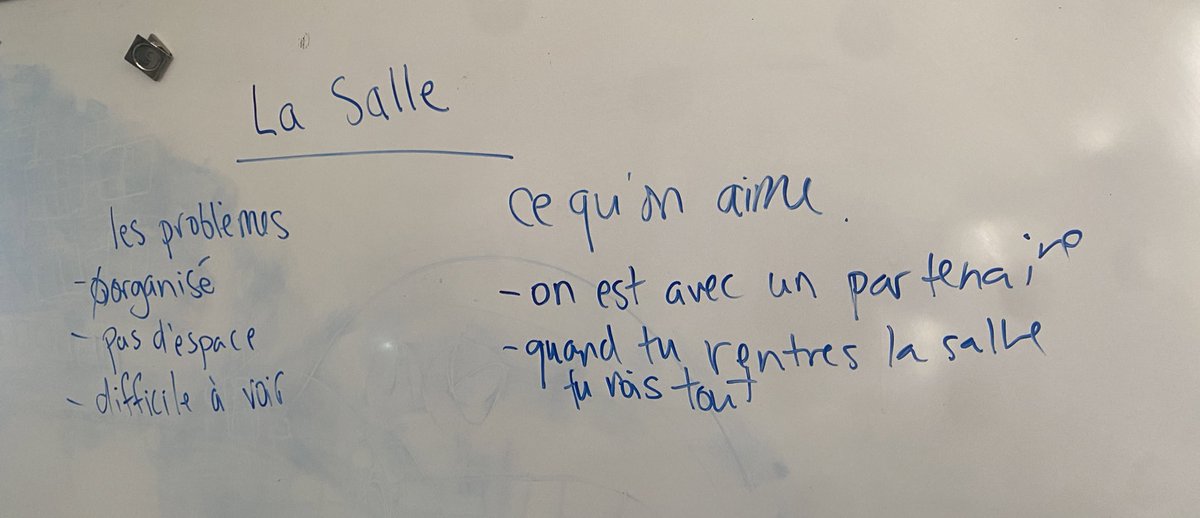 La Salle
les problèmes
- øorganisé
- pas d'espace
- difficile à voir
ce qu'on aime.
- on est avec un partenaire
- quand tu rentres la salle
tu vois tout